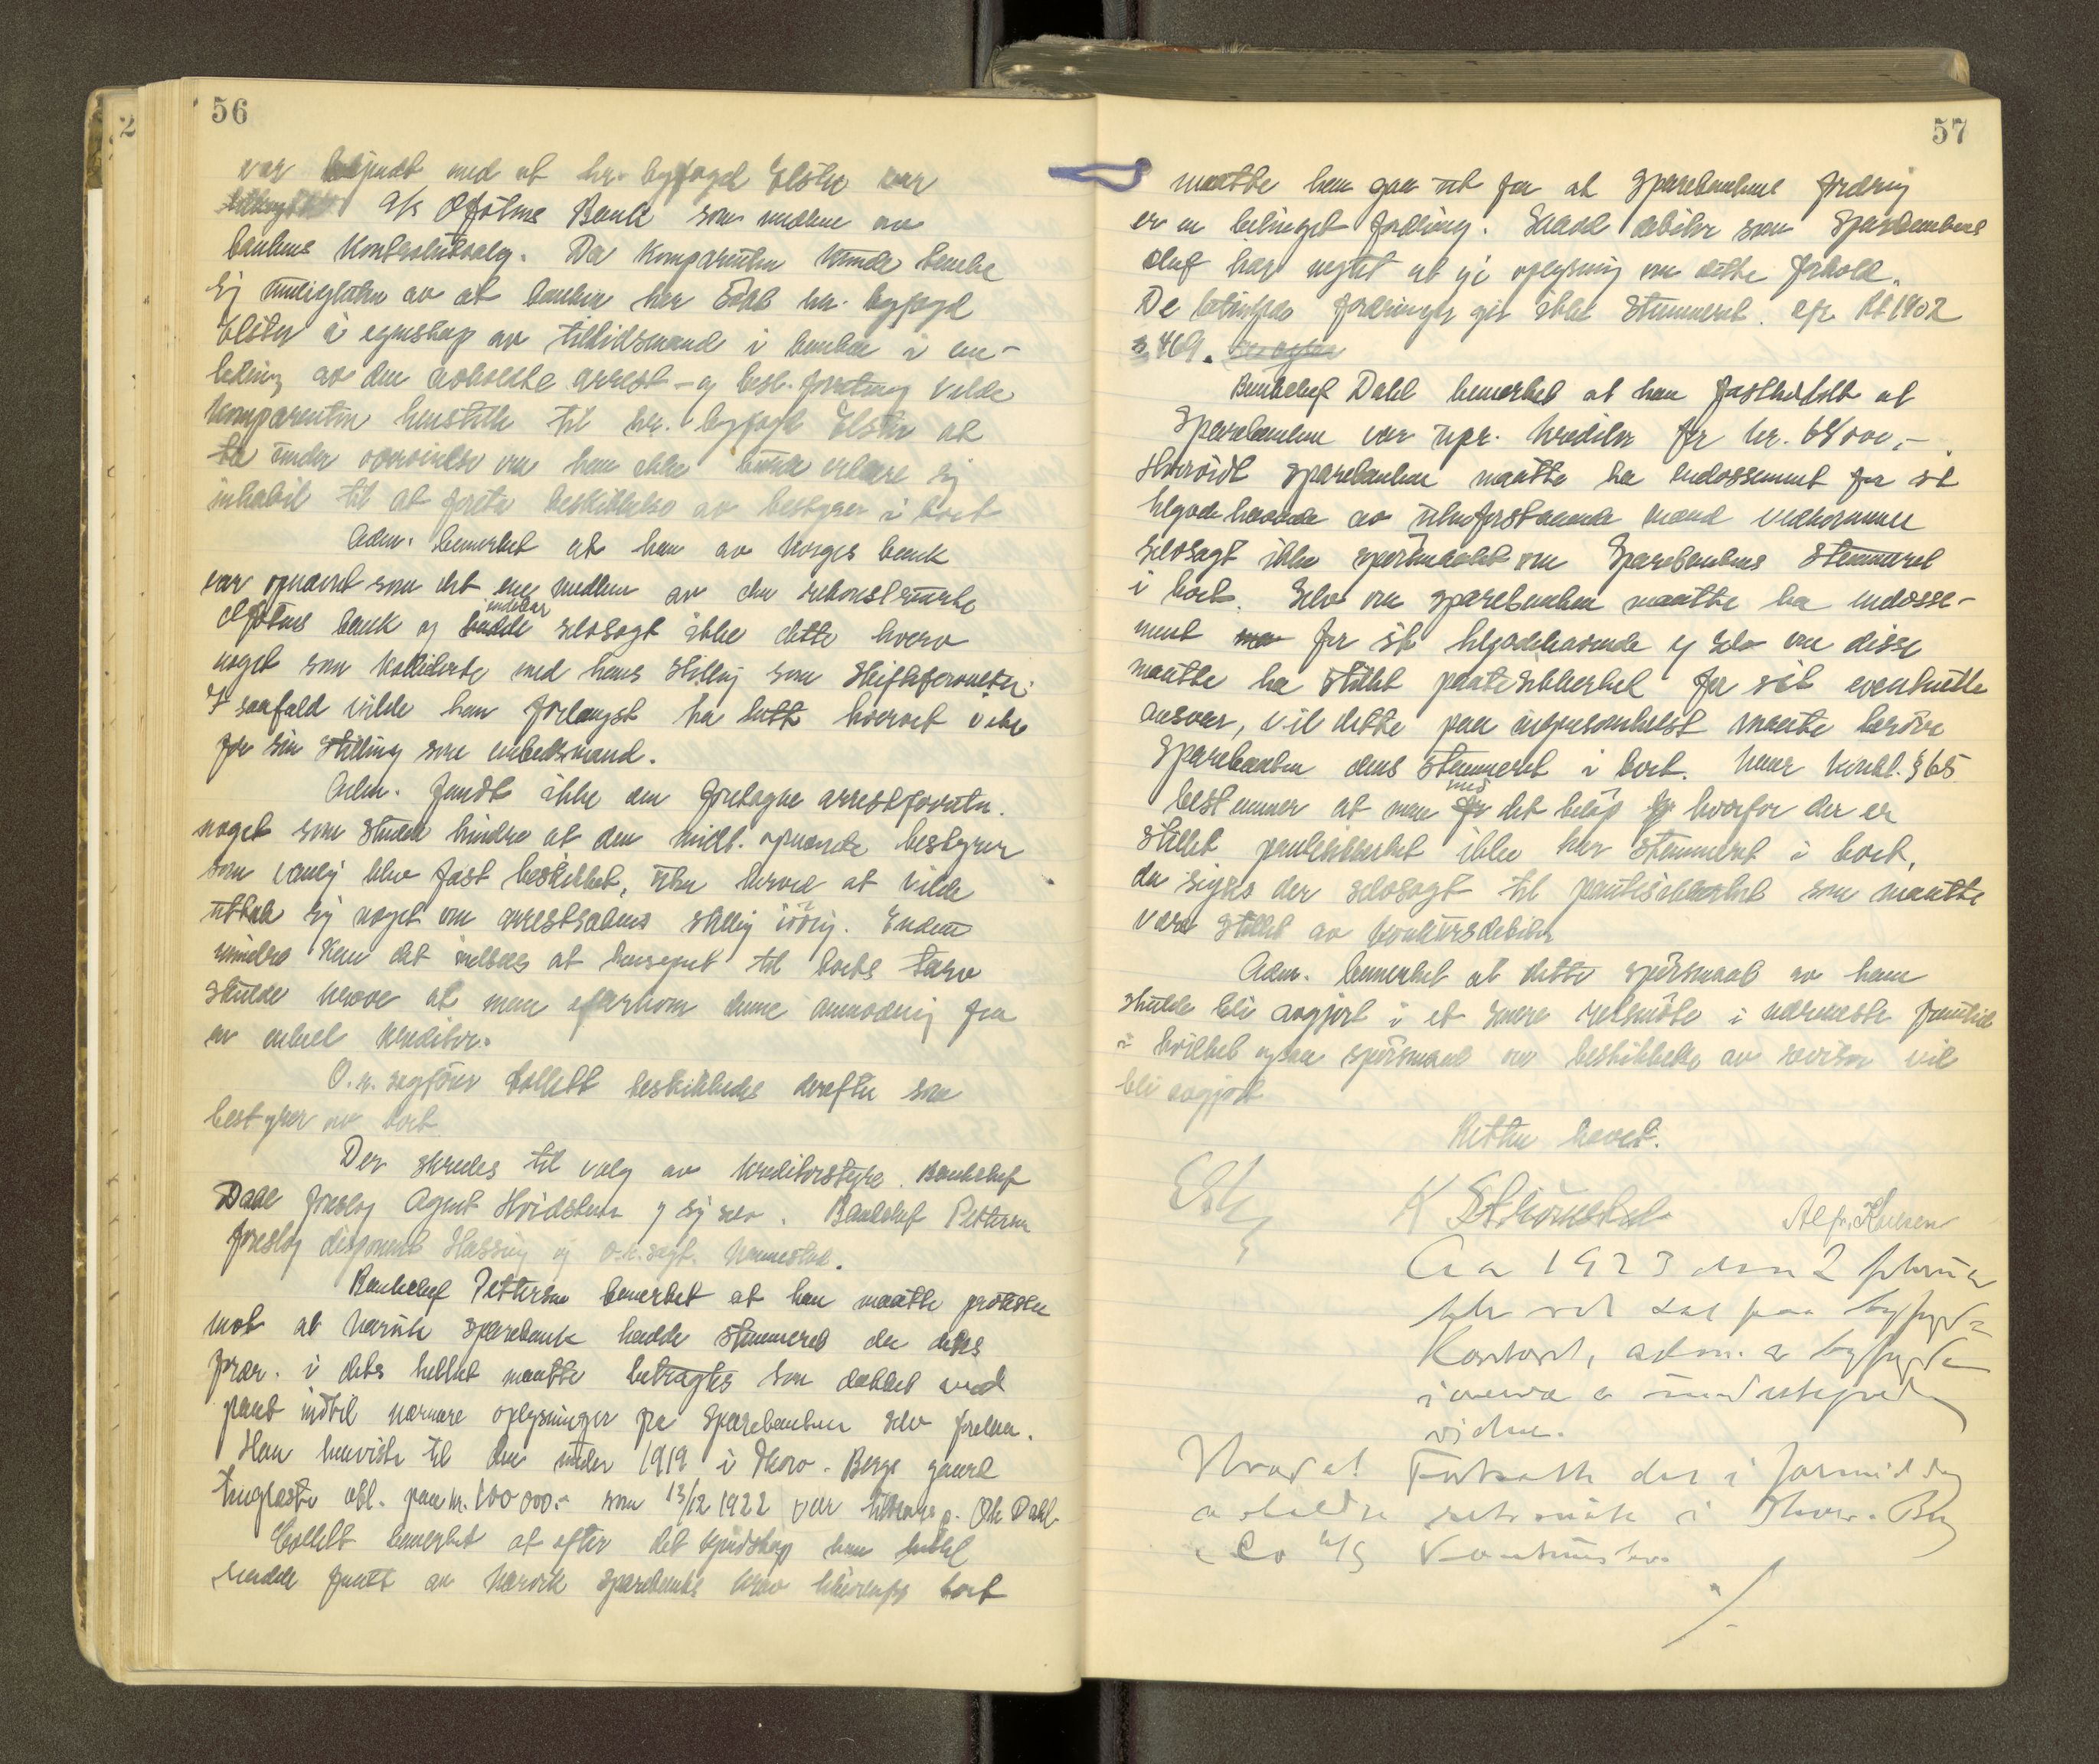 56
var bekjendt med at hr. byfogd Elster var
A/s Ofotens Bank som medlem av
bankens Kontrolutvalg. Da Komparenten kunde tænke
sig muligheten av at banken har bedt hr. byfogd
Elster i egenskap av tillidsmand i banken i an-
ledning av den avholdte arrest- og besl. forretning vilde
Komparenten henstille til hr. byfogd Elster at
ta under overveielse om han ikke burde erklære sig
inhabil til at foreta beskikkelse av bestyrer i boet
Adm. bemerket at han av Norges bank
var opnævnt som det ene medlem av den rekonstruerte
Ofotens bank og hadde indebar selvsagt ikke dette hverv
noget som kolliderte med hans stilling som skifteforvalter.
I saafald vilde han forlængst ha latt hvervet vike
for sin stilling som embedsmand.
Adm. fandt ikke den foretagne arrestforretn.
noget som skulde hindre at den midl. opnævnte bestyrer
som vanlig blev fast beskikket, uten derved at vilde
uttale sig noget om arrestsakens stilling iøvrig. Endnu
mindre kan det indsees at hensynet til boets tarv
skulde kræve at man efterkom denne anmodning fra
en enkelt kreditor.
O.r. sagfører Collett beskikkedes derefter som
bestyrer av boet
Der skredes til valg av kreditorstyre. Bankchef
Dahl foreslog Agent Hvidsten og sig selv. Bankchef Pettersen
foreslog disponent Hassing og o.r.sagf. Hannestad.
Bankchef Pettersen bemerket at han maatte protestere
mot at Narvik sparebank hadde stemmeret da dens
fordr. i dets helhet maatte betragtes som dækket ved
pant indtil nærmere oplysninger fra Sparebanken selv forelaa.
Han henviste til den under 1919 i Thorv. Bergs gaard
tinglæste obl. paa kr. 100 000.- som 13/12 1922 var Ole Dahl.
Collett bemerket at efter det kjendskap han hittil
hadde faatt av Narvik sparebanks krav likeoverfor boet
57
maatte han gaa ut fra at Sparebankens fordring
er en betinget fordring. Saavel debitor som Sparebankens
chef har negtet at gi oplysning om dette forhold.
De betingede fordringer gir ikke stemmeret. cfr. Rt 1902
s 469.
Bankchef Dahl bemerket at han fastholdt at
Sparebanken var upr. kreditor for kr. 68 000,-
Hvorvidt sparebanken maatte ha endossement for sit
tilgodehavende av utenforstaaende mænd vedkommer
selvsagt ikke spørsmaalet om Sparebankens stemmeret
i boet. Selv om sparebanken maatte ha endosse-
ment for sit tilgodehavende og selv om disse
maatte ha stillet pantesikkerhet for sit eventuelle
ansvar, vil dette paa ingensomhelst maate berøve
Sparebanken dens stemmeret i boet. Naar konkl. § 65
bestemmer at man for med det beløp hvorfor der er
stillet pantesikkerhet ikke har stemmeret i boet,
da sigtes der selvsagt til pantesikkerhet som maatte
være stillet av konkursdebitor
Adm. bemerket at dette spørsmaal av ham
skulde bli avgjort i et senere retsmøte i nærmeste fremtid
i hvilket ogsaa spørsmaal om beskikkelse av revisor vil
bli avgjort
Retten hævet.
Elster
K
Alfr. Karlsen
Aar 1923 den 2 februar
blev ret sat paa byfogd-
Kontoret, adm. av byfogden
i nærvær av undertegnede
vidne.
Hvorda! Fortsatte det i formiddag
avholdte retsmøte i Thorv. Berg
& Co A/S Konkursbo.